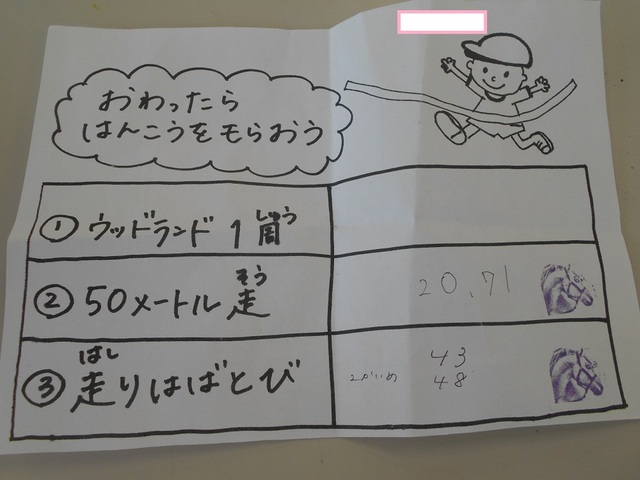 おわったら
はんこうをモらおう
① ウッドランド 1周
しゅう
② 50メートル走
そう
20.71
③ 走りはばとび
はし
43
2かいめ 48